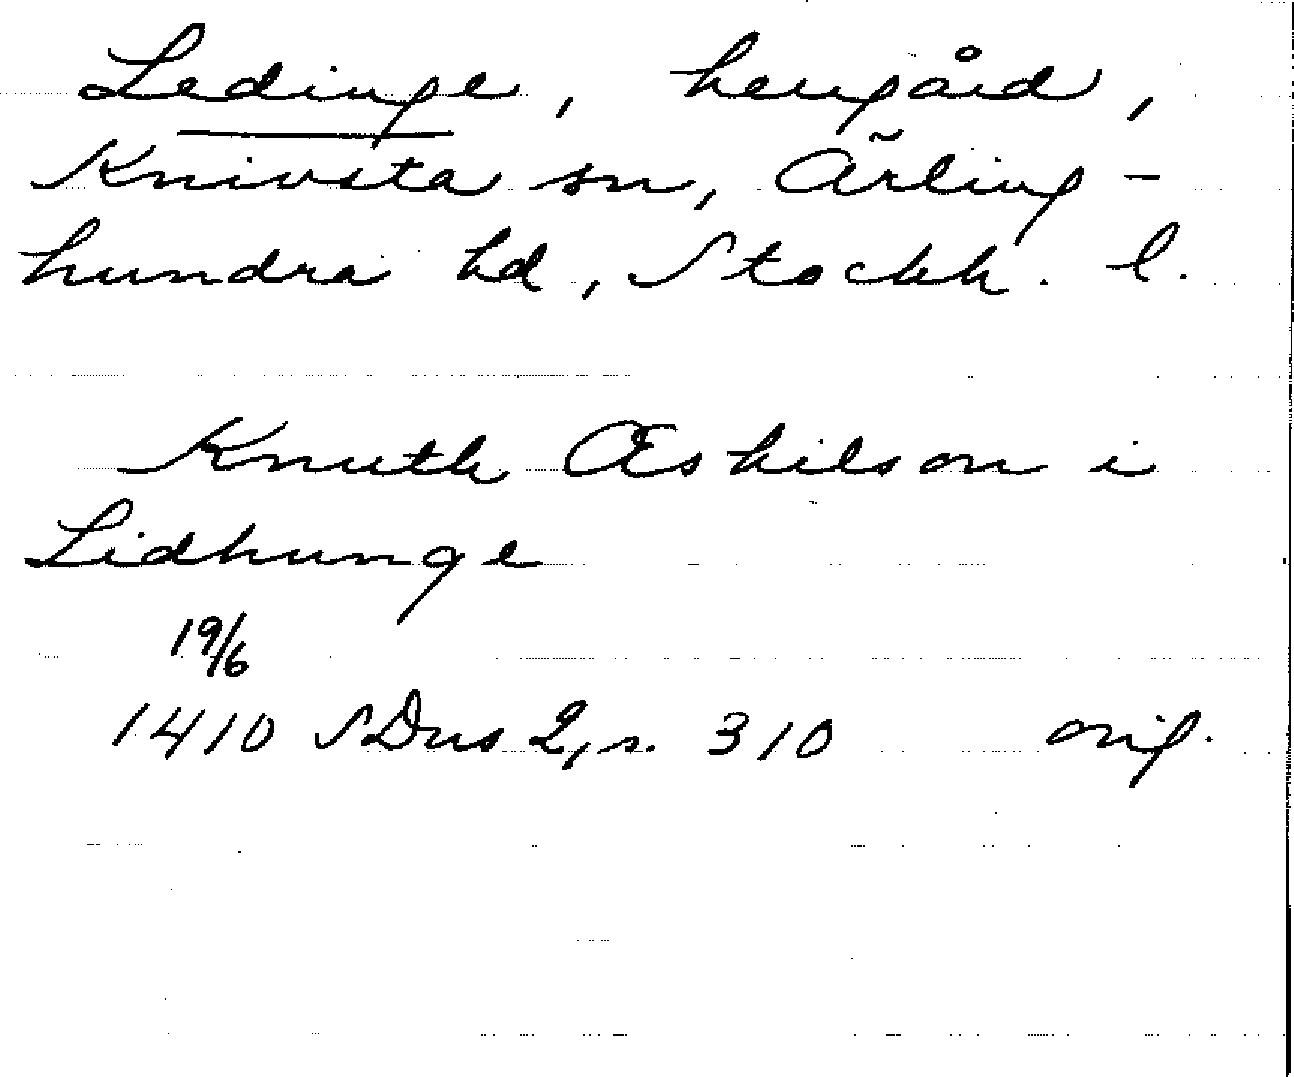 Ledinge, herrgård,
Knivsta sn, Ärling-
hundra hd, Stockh. l.
Knuth Æskilson i
Lidhunge
19/6
1410 SDns 2, s. 310 orig.